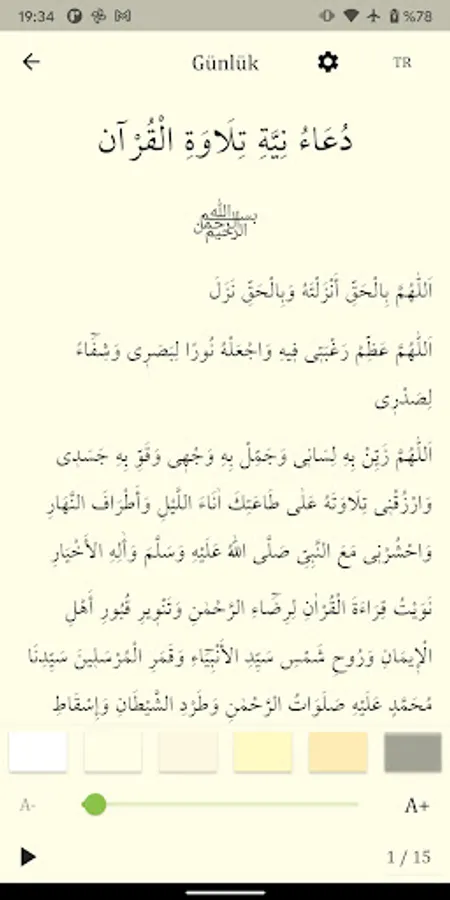 19:34
%78
Günlük
TR
دُعَاءُ نِيَّةِ تِلَاوَةِ الْقُرْآن
بسم الله الرحمن الرحيم
اَللّٰهُمَّ بِالْحَقِّ أَنْزَلْتَهُ وَبِالْحَقِّ نَزَلَ
اَللّٰهُمَّ عَظِّمْ رَغْبَتِى فِيهِ وَاجْعَلْهُ نُورًا لِبَصَرِى وَشِفَٓاءً
لِصَدْرِى
اَللّٰهُمَّ زَيِّنْ بِهِ لِسَانِى وَجَمِّلْ بِهِ وَجْهِى وَقَوِّ بِهِ جَسَدِى
وَارْزُقْنِى تِلَاوَتَهُ عَلٰى طَاعَتِكَ اٰنَاءَ اللَّيْلِ وَأَطْرَافَ النَّهَارِ
وَاحْشُرْنِى مَعَ النَّبِيِّ صَلَّى اللهُ عَلَيْهِ وَسَلَّمَ وَاٰلِهِ الأَخْيَارِ
نَوَيْتُ قِرَاءَةَ الْقُرْاٰنِ لِرِضَٓاءِ الرَّحْمٰنِ وَتَنْوِيرِ قُبُورِ أَهْلِ
الْإِيمَانِ وَرُوحِ شَمْسِ سَيِّدِ الأَنْبِيَٓاءِ وَقَمَرِ الْمُرْسَلِينَ سَيِّدِنَا
مُحَمَّدٍ عَلَيْهِ صَلَوَاتُ الرَّحْمٰنِ وَطَرْدِ الشَّيْطَانِ وَإِسْقَاطِ
A-
A+
1 / 15